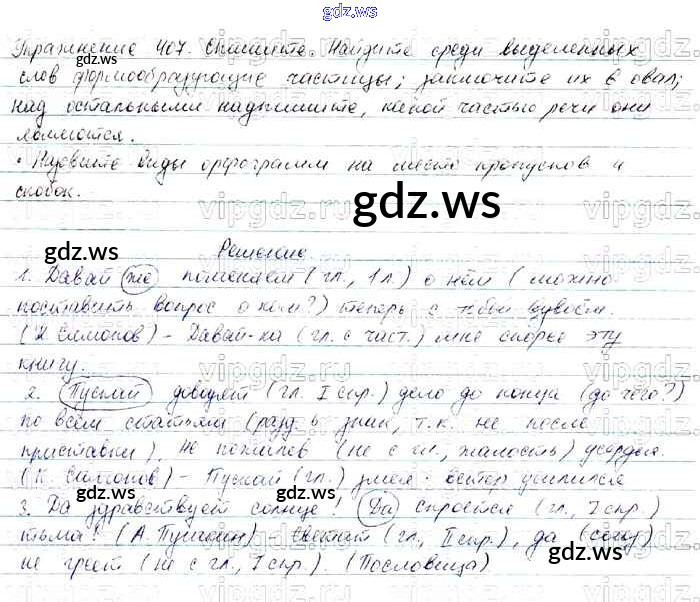 gdz.ws
Упражнение 407. Спишите. Найдите среди выделенных
слов формообразующие частицы; заключите их в овал;
над остальными надпишите, какой частью речи они
являются.
• Назовите виды орфограмм на месте пропусков и
скобок.
gdz.ws
gdz.ws
Решение.
1. Давай же помолчим (гл., 1 л.) о нём (можно
поставить вопрос о ком?) теперь с тобой вдвоём.
(К. Симонов) – Давай-ка (гл. с част.) мне скорее эту
книгу.
2. Пускай доведут (гл. I спр.) дело до конца (до чего?)
по всем статьям (разд. ь знак, т.к. не после
приставки), не пожалев (не с гл., жалость) усердья.
(К. Симонов) – Пускай (гл.) змея - ветер усилился
3. Да здравствует солнце! Да скроется (гл., I спр.)
тьма! (А. Пушкин) Светит (гл., II спр.), да (союз)
не греет (не с гл., I спр.). (Пословица)
gdz.ws
gdz.ws
gdz.ws
vipgdz.ru